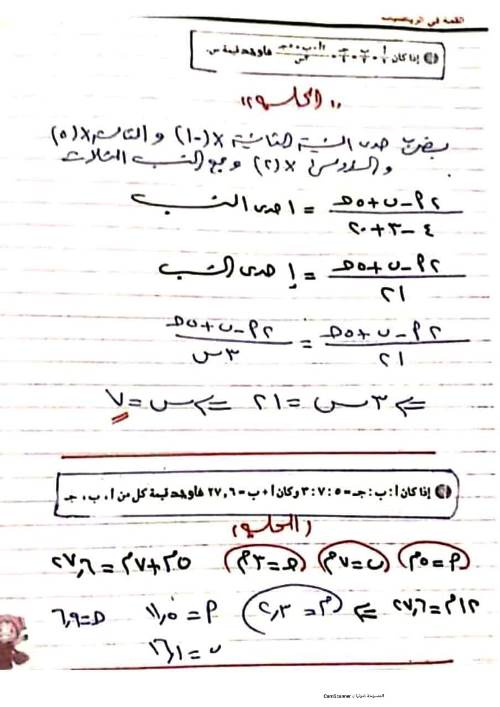 القمة في الرياضيات
إذا كان أ/٢ = ب/٣ = جـ/٤ = ٢أ - ب + ٥جـ / ٣س فأوجد قيمة س.
(الحل)
بضرب حدى النسبة الثانية × (-١) و الثالثة × (٥)
و × (٢) و جمع النسب الثلاث
٢أ - ب + ٥جـ / ٤ - ٣ + ٢٠ = إحدى النسب
٢أ - ب + ٥جـ / ٢١ = إحدى النسب
٢أ - ب + ٥جـ / ٢١ = ٢أ - ب + ٥جـ / ٣س
⇐ ٣س = ٢١ ⇐ س = ٧
إذا كان أ : ب : جـ = ٥ : ٧ : ٣ وكان أ + ب = ٢٧,٦ فأوجد قيمة كل من أ ، ب ، جـ
(الحل)
(أ = ٥م) (ب = ٧م) (جـ = ٣م) ٥م + ٧م = ٢٧,٦
١٢م = ٢٧,٦ ⇐ (م = ٢,٣) أ = ١١,٥ جـ = ٦,٩
ب = ١٦,١
الممسوحة ضوئيا بـ CamScanner